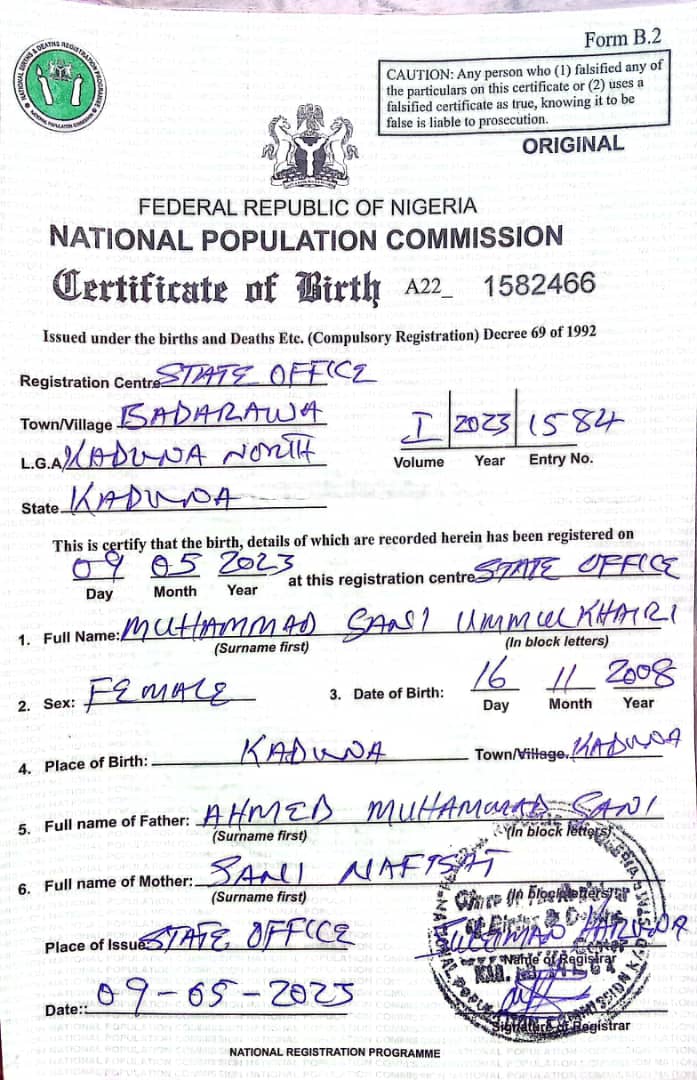 Form B.2
NATIONAL BIRTHS & DEATHS REGISTRATION PROGRAMME
NATIONAL POPULATION COMMISSION
CAUTION: Any person who (1) falsified any of
the particulars on this certificate or (2) uses a
falsified certificate as true, knowing it to be
false is liable to prosecution.
ORIGINAL
FEDERAL REPUBLIC OF NIGERIA
NATIONAL POPULATION COMMISSION
Certificate of Birth A22_ 1582466
Issued under the births and Deaths Etc. (Compulsory Registration) Decree 69 of 1992
Registration Centre STATE OFFICE
Town/Village BADARAWA
L.G.A KADUNA NORTH
I 2023 1584
Volume Year Entry No.
State KADUNA
This is certify that the birth, details of which are recorded herein has been registered on
09 05 2023 at this registration centre STATE OFFICE
Day Month Year
1. Full Name: MUHAMMAD SANI UMMULKHAIRI
(Surname first) (In block letters)
2. Sex: FEMALE 3. Date of Birth: 16 11 2008
Day Month Year
4. Place of Birth: KADUNA Town/Village. KADUNA
5. Full name of Father: AHMED MUHAMMAD SANI
(Surname first) (In block letters)
6. Full name of Mother: SANI NAFISAT
(Surname first) (In block letters)
Place of Issue STATE OFFICE
Name of Registrar
Date:: 09-05-2023
Signature of Registrar
NATIONAL REGISTRATION PROGRAMME